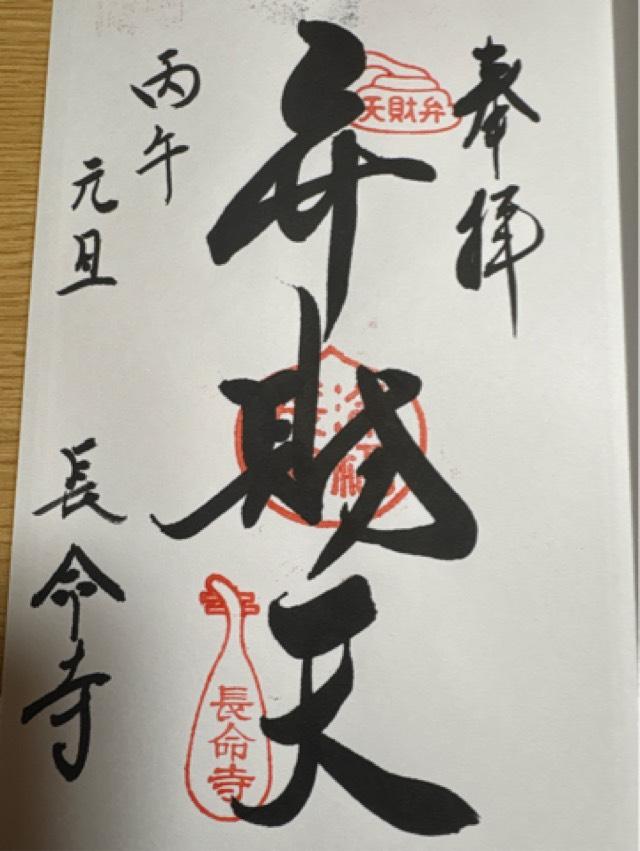 奉拝
弁財天
弁財天
長命寺
丙午
元旦
長命寺